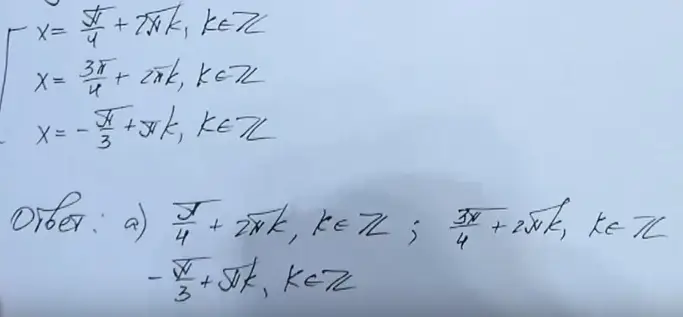 x = π/4 + 2πk, k∈ℤ
x = 3π/4 + 2πk, k∈ℤ
x = -π/3 + πk, k∈ℤ
Ответ: а) π/4 + 2πk, k∈ℤ; 3π/4 + 2πk, k∈ℤ
-π/3 + πk, k∈ℤ